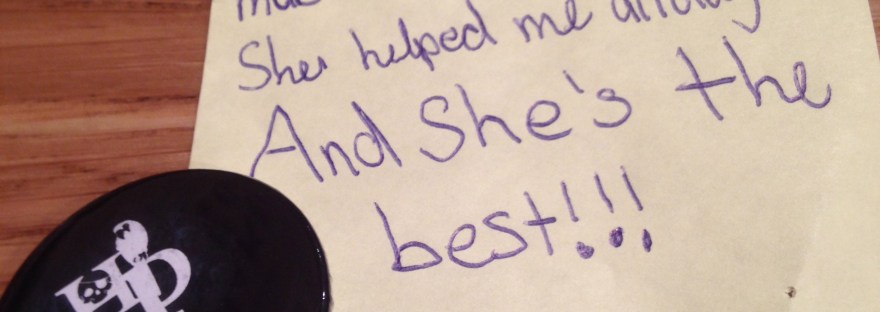 She helped me
And She's the
best!!!
HP